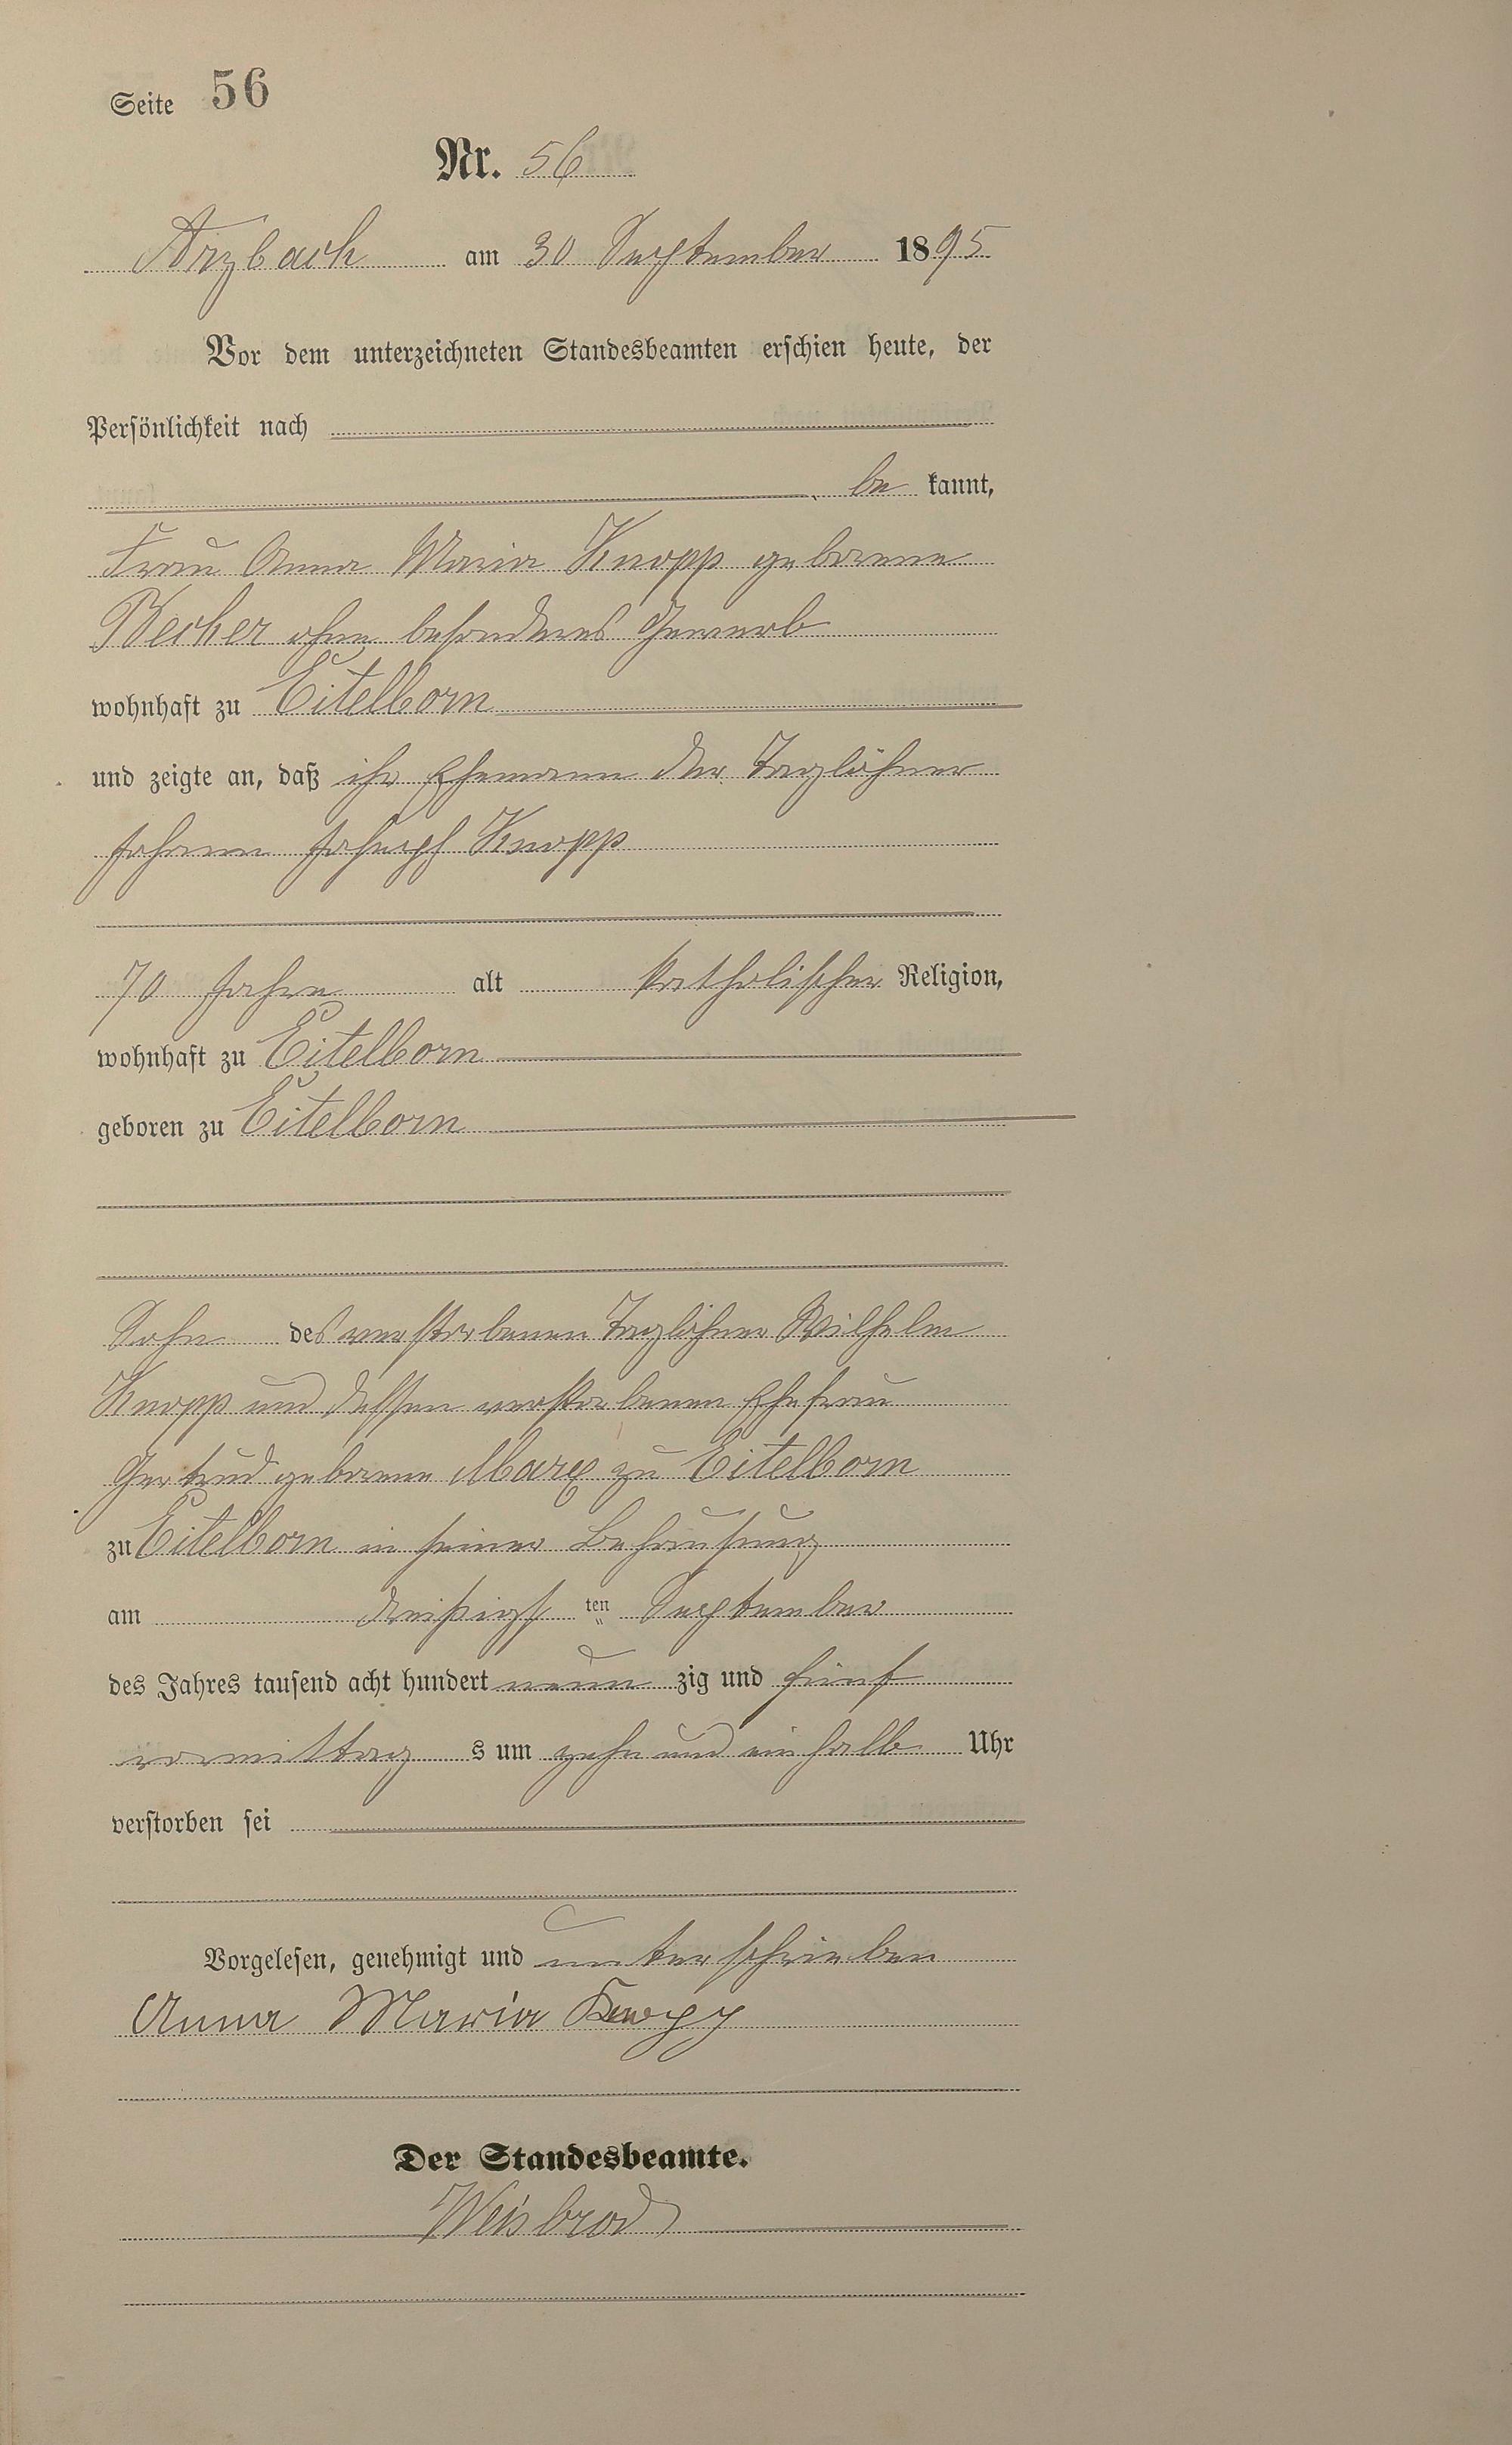 Seite 56
Nr. 56
Arzbach am 30 September 1895
Vor dem unterzeichneten Standesbeamten erschien heute, der
Persönlichkeit nach
be kannt,
Frau Anna Maria Knopp geborene
Becker ohne besonderes Gewerb
wohnhaft zu Eitelborn
und zeigte an, daß ihr Ehemann der Taglöhner
Johann Joseph Knopp
70 Jahre alt katholischer Religion,
wohnhaft zu Eitelborn
geboren zu Eitelborn
Sohn des verstorbenen Taglöhner Wilhelm
Knopp und dessen verstorbenen Ehefrau
Gertrud geborene Marx zu Eitelborn
zu Eitelborn in seiner Behausung
am dreißigs ten September
des Jahres tausend acht hundert neun zig und fünf
vormittag s um zehn und ein halb Uhr
verstorben sei
Vorgelesen, genehmigt und unterschrieben
Anna Maria Knopp
Der Standesbeamte.
Weisbrod